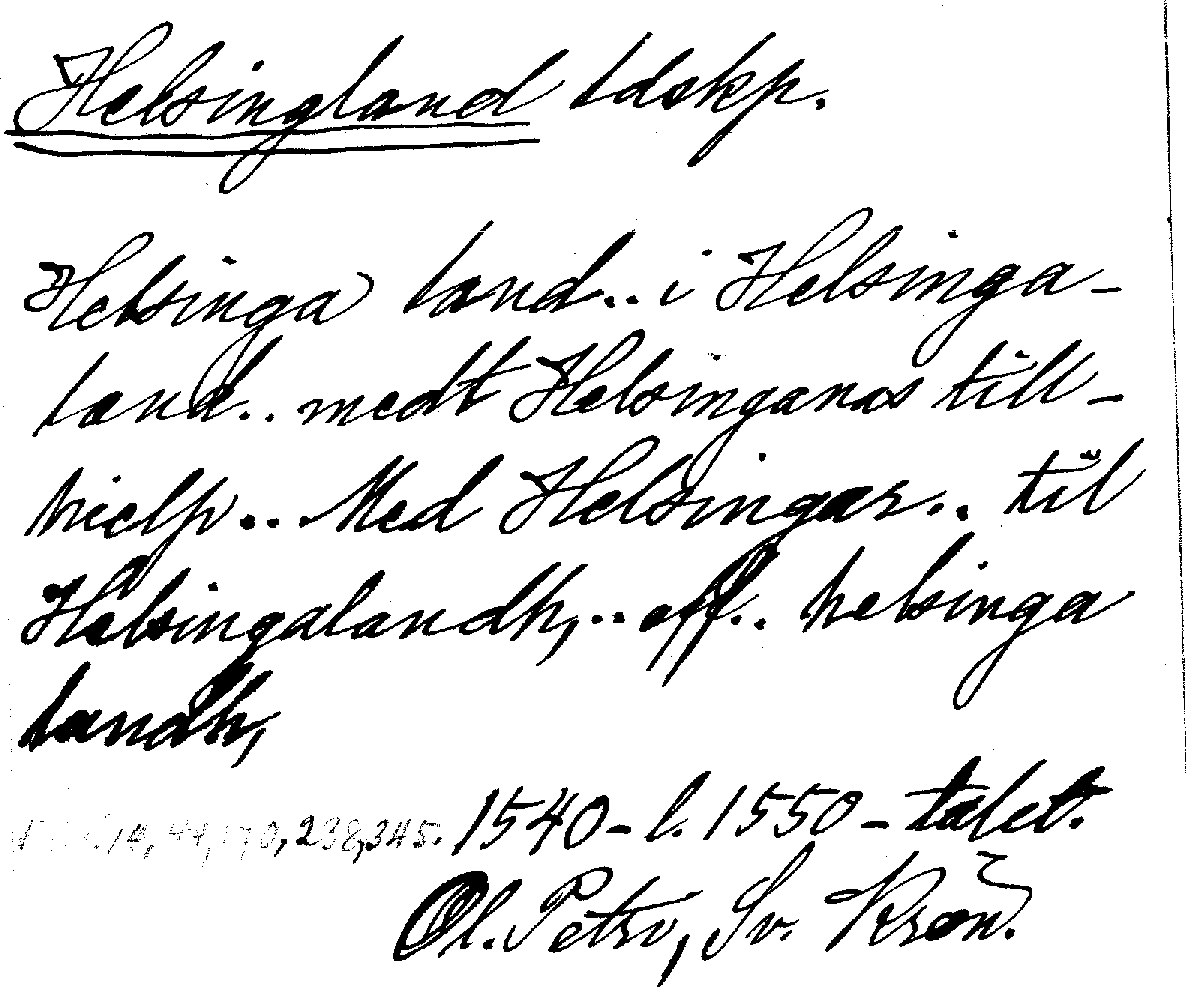 Helsingland ldskp.
Helsinga land.. i Helsinga-
land.. medt Helsinganas till-
hielp.. Med Helsingar.. til
Helsingalandh,.. aff.. helsinga
landh,
14, 44, 170, 238, 345. 1540- l. 1550-talet.
Ol. Petri, Sv. Krön.